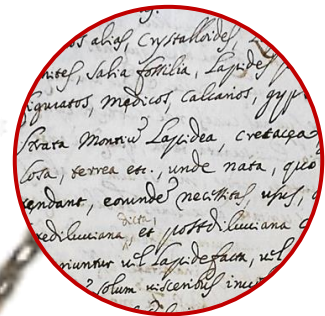 alias, Crystalloides,
nites, Salia fossilia, Lapides
figuratos, medicos, calcarios, gyp
Strata Montiu Lapidea, cretacea
losa, terrea etc., unde nata, quo
tendant, eorunde necessitas, usus,
dicta
rediluviana et postdiluviana
riuntur vel Lapidefacta, vel
solum visceribus